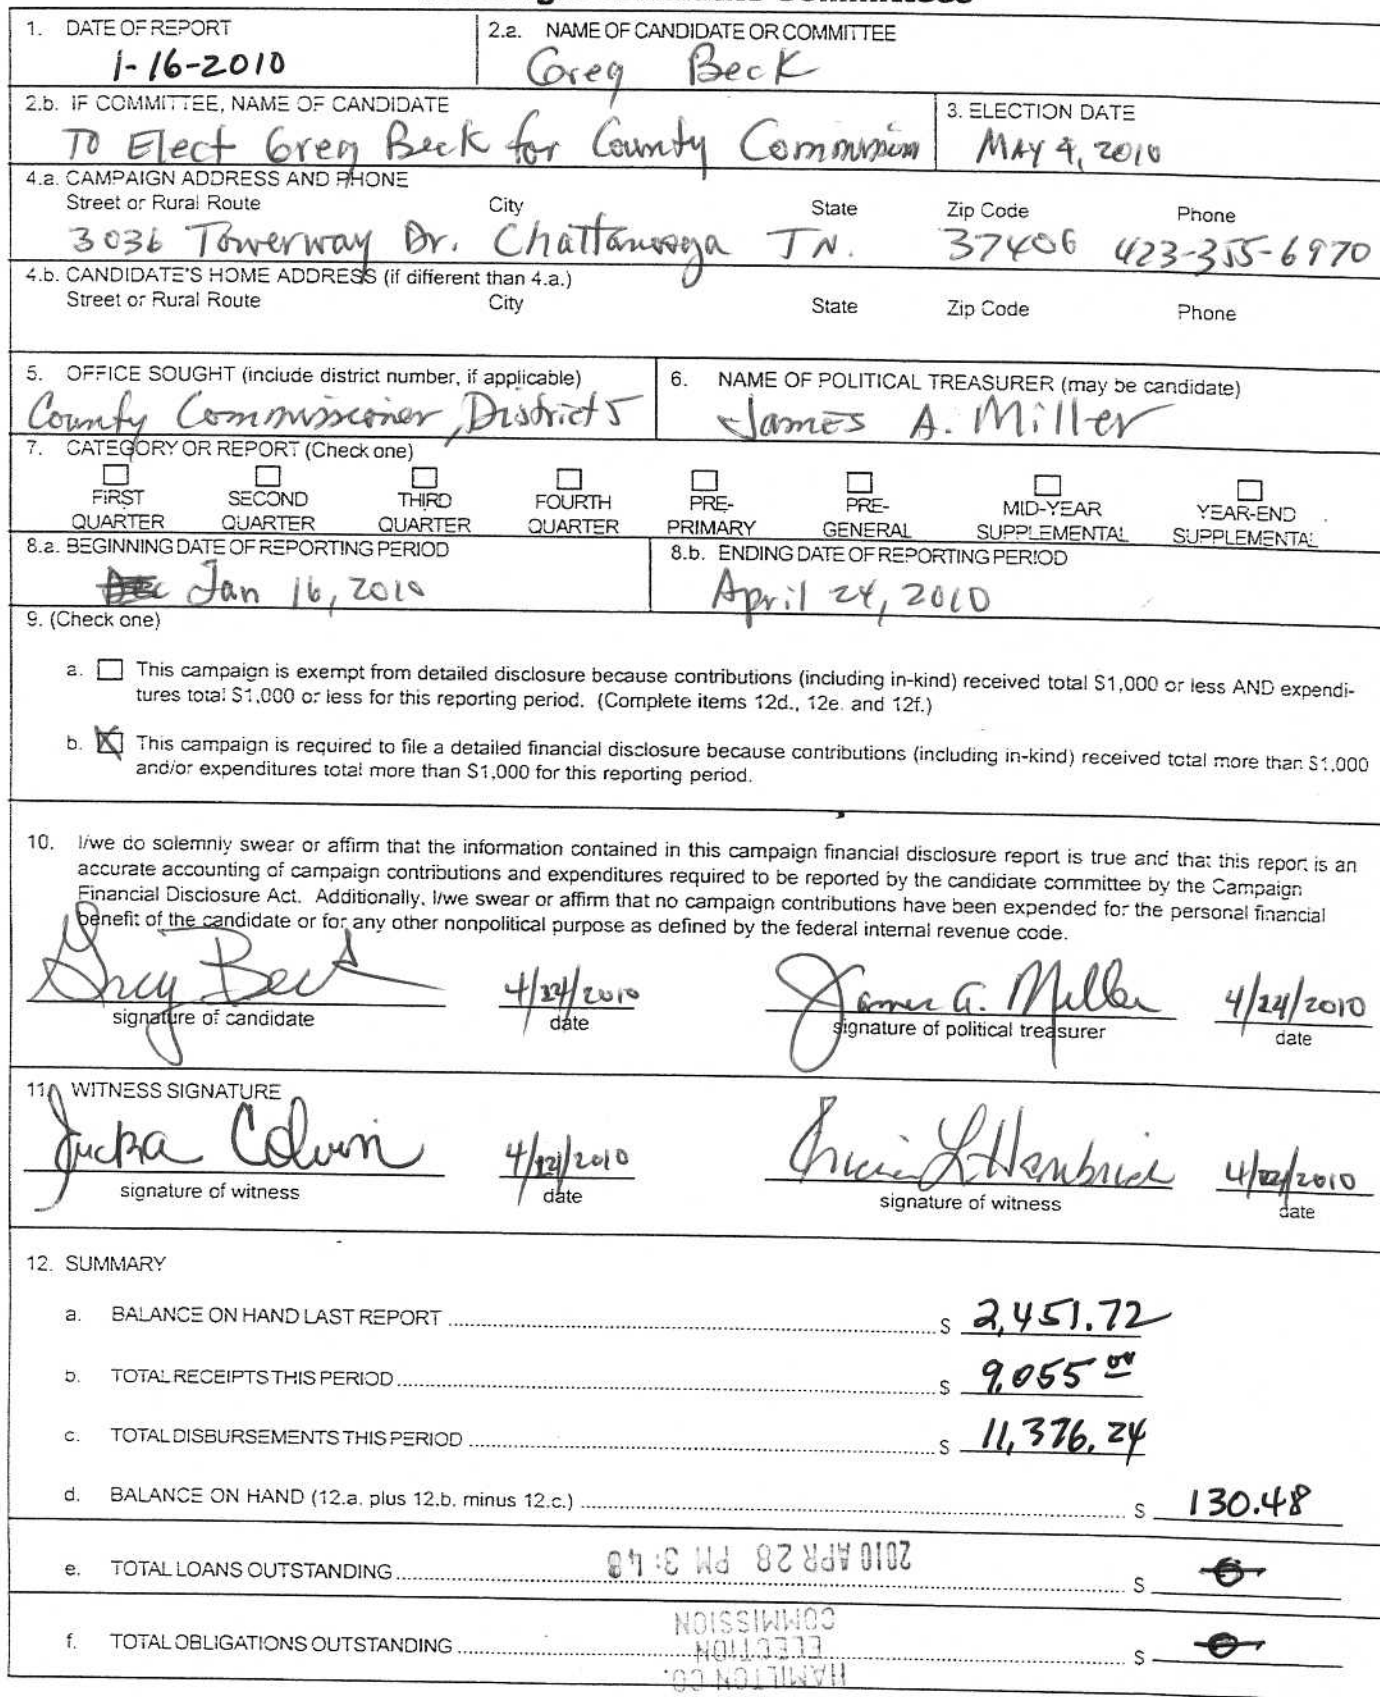 1. DATE OF REPORT
1-16-2010
2.a. NAME OF CANDIDATE OR COMMITTEE
Greg Beck
2.b. IF COMMITTEE, NAME OF CANDIDATE
TO Elect Greg Beck for County Commission
3. ELECTION DATE
MAY 4, 2010
4.a. CAMPAIGN ADDRESS AND PHONE
Street or Rural Route City State Zip Code Phone
3036 Towerway Dr. Chattanooga TN. 37406 423-355-6970
4.b. CANDIDATE'S HOME ADDRESS (if different than 4.a.)
Street or Rural Route City State Zip Code Phone
5. OFFICE SOUGHT (include district number, if applicable)
County Commissioner, District 5
6. NAME OF POLITICAL TREASURER (may be candidate)
James A. Miller
7. CATEGORY OR REPORT (Check one)
FIRST QUARTER
SECOND QUARTER
THIRD QUARTER
FOURTH QUARTER
PRE-PRIMARY
PRE-GENERAL
MID-YEAR SUPPLEMENTAL
YEAR-END SUPPLEMENTAL
8.a. BEGINNING DATE OF REPORTING PERIOD
Jan 16, 2010
8.b. ENDING DATE OF REPORTING PERIOD
April 24, 2010
9. (Check one)
a. This campaign is exempt from detailed disclosure because contributions (including in-kind) received total $1,000 or less AND expendi-
tures total $1,000 or less for this reporting period. (Complete items 12d., 12e. and 12f.)
b. This campaign is required to file a detailed financial disclosure because contributions (including in-kind) received total more than $1,000
and/or expenditures total more than $1,000 for this reporting period.
10. I/we do solemnly swear or affirm that the information contained in this campaign financial disclosure report is true and that this report is an
accurate accounting of campaign contributions and expenditures required to be reported by the candidate committee by the Campaign
Financial Disclosure Act. Additionally, I/we swear or affirm that no campaign contributions have been expended for the personal financial
benefit of the candidate or for any other nonpolitical purpose as defined by the federal internal revenue code.
Greg Beck 4/24/2010 James A. Miller 4/24/2010
signature of candidate date signature of political treasurer date
11. WITNESS SIGNATURE
Colvin 4/ /2010 4/ /2010
signature of witness date signature of witness date
12. SUMMARY
a. BALANCE ON HAND LAST REPORT $ 2,451.72
b. TOTAL RECEIPTS THIS PERIOD $ 9,055 00
c. TOTAL DISBURSEMENTS THIS PERIOD $ 11,376.24
d. BALANCE ON HAND (12.a. plus 12.b. minus 12.c.) $ 130.48
e. TOTAL LOANS OUTSTANDING $ 0
2010 APR 28 PM 3:48
f. TOTAL OBLIGATIONS OUTSTANDING $ 0
HAMILTON CO.
ELECTION
COMMISSION